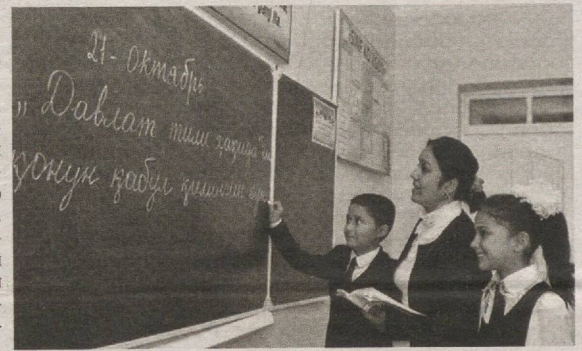 21-Октябрь
„Давлат тили ҳақида"ги
қонун қабул қилинган кун